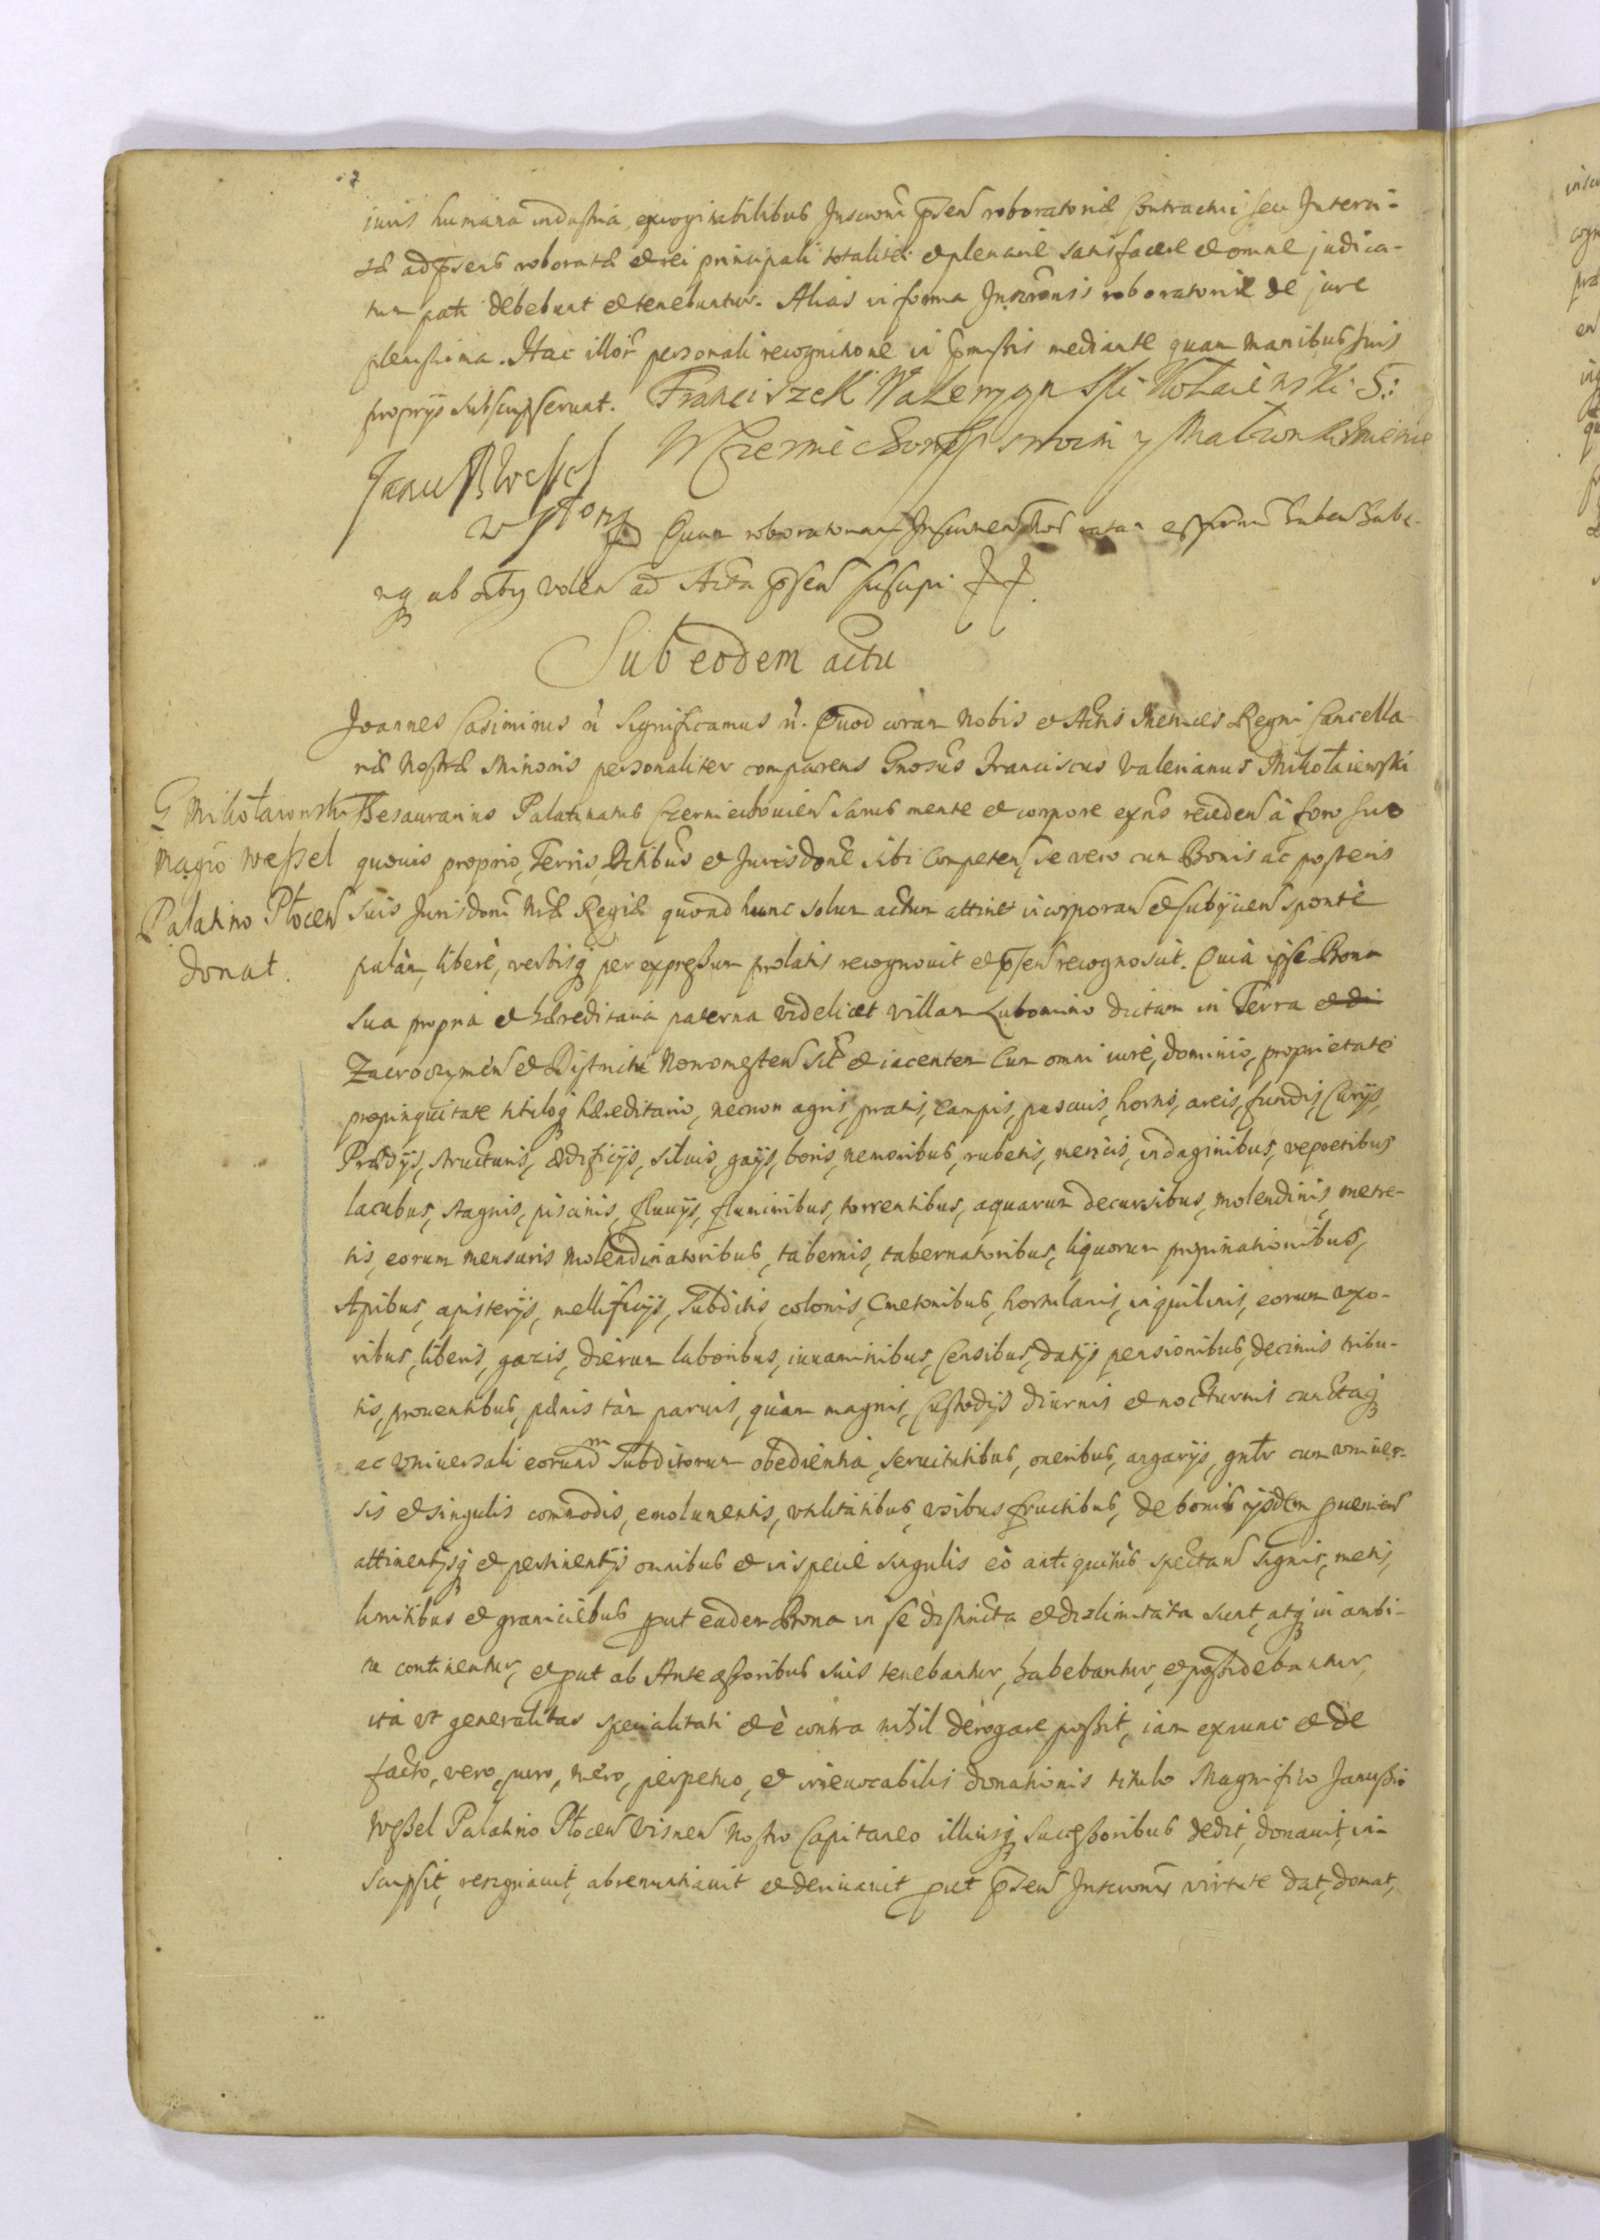 iuris humana industria excogitabilibus Inscriptioni pñsen roboratoriæ Contractui seu Interci-
sæ ad pñsens roboratæ et rei principali totaliter et plenarie satisfacere et omne judica-
tum pati debebunt et tenebuntur. Alias in forma Inscrõnis roboratoriæ de jure
plenissima. Hac illor̃ personali recognitione in præmissis mediante quam manibus suis
proprijs subscripserunt. Franciszek Waleryan Mikołaiewski S:
Janusz Wessel
Quam roboratoriam
ab actis volen ad Acta pñsen suscepi
Sub eodem actu
Joannes Casimirus ñ Significamus ñ. Quod coram Nobis et Actis Metrices Regni Cancella-
riæ Nostræ Minoris personaliter comparens Gnosus Franciscus Valerianus Mikołaiewski
G Mikołaiowski
Magco Weßel
Palatino Płocen
donat.
Thesaurarius Palatinatus Czerniechouien sanus mente et corpore exñs recedens à foro suo
quouis proprio, Terris, Actibus et Jurisdonẽ sibi Competen, se vero cum Bonis ac posteris
suis Jurisdoni Nræ Regiæ quoad hunc solum actum attinet incorporans et subijciens sponte
palàm, liberè, verbisq per expreßum prolatis recognouit et pñsen recognoscit. Quià ipse Bona
sua propria et hæreditaria paterna videlicet villam Lubomino dictam in Terra et di
Zacroczymen et Districtu Nowomesten sit et iacentem Cum omni iure, dominio, proprietate
propinquitate tituloq hæreditario, necnon agris, pratis, campis, pascuis, hortis, areis, fundis, Curijs,
Prædijs, structuris, ædificijs, siluis, gaijs, boris, nemoribus, rubetis, mericis, indaginibus, vepretibus
lacubus, stagnis, piscinis, fluuijs, fluminibus, torrentibus, aquarum decursibus, molendinis, metre-
tis, eorum mensuris molendinatoribus, tabernis, tabernatoribus, liquorum propinationibus,
Apibus, apisterijs, mellificijs, Subditis, colonis, Cmetonibus, hortulanis, inquilinis, eorum uxo-
ribus, liberis, gazis, dierum laboribus, iuuaminibus, Censibus, datijs pensionibus, decimis tribu-
tis, prouentibus, pœnis tàm paruis, quàm magnis, Custodijs diurnis et nocturnis cunctaq
ac vniuersali eorundm Subditorum obedientia, seruitutibus, oneribus, angarijs, gnlr cum vniuer-
sis et singulis commodis, emolumentis, vtilitatibus, vsibus fructibus, de bonis ijsdem prouenien
attinentijsq et pertinentijs omnibus et in specie singulis eò antiquitùs spectan signis, metis,
limitibus et graniciebus put eadem Bona in se distincta et dislimitata sunt, atq in ambi-
tu continentur, et put ab Anteceßoribus suis tenebantur, habebantur, et poßidebantur,
ita vt generalitas specialitati et è contra nihil derogare poßit, iam exnunc et de
facto, vero, puro, mero, perpetuo, et irreuocabilis donationis titulo Magnifico Janußio
Weßel Palatino Płocen Visnen Nostro Capitaneo illiusq succeßoribus dedit, donauit, in-
scripsit, resignauit, abrenuntiauit et deriuauit put pñsen Inscrõnis virtute dat, donat,